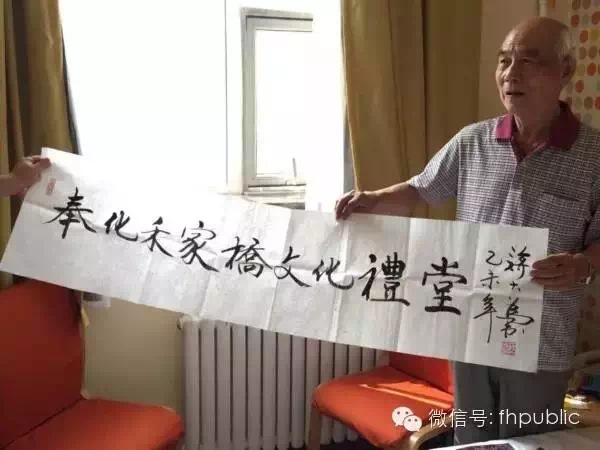 奉化禾家橋文化禮堂
蒋
乙未年
微信号: fhpublic